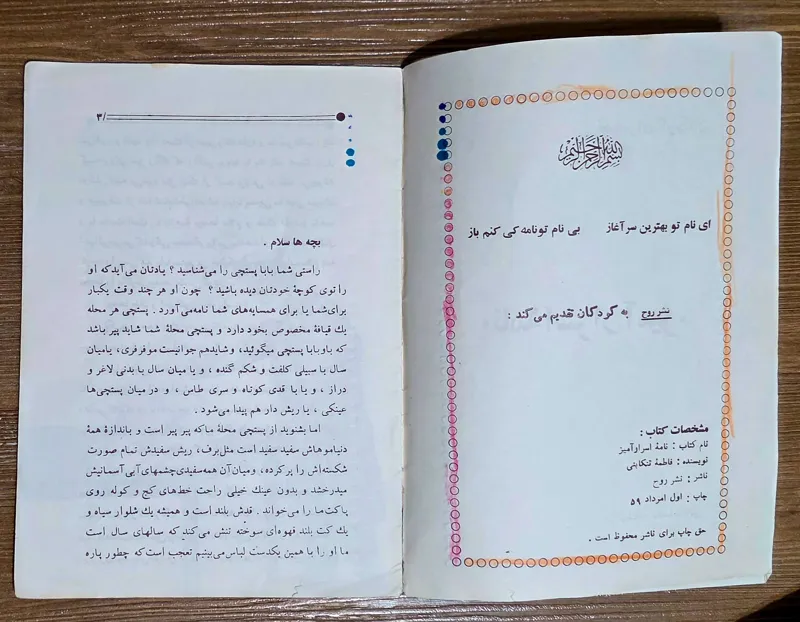 بسم الله الرحمن الرحیم
ای نام تو بهترین سرآغاز بی نام تونامه کی کنم باز
نشر روح به کودکان تقدیم می کند :
مشخصات کتاب :
نام کتاب : نامهٔ اسرارآمیز
نویسنده : فاطمهٔ تنکابنی
ناشر : نشر روح
چاپ : اول امرداد ۵۹
حق چاپ برای ناشر محفوظ است .
۳/
بچه ها سلام .
راستی شما بابا پستچی را می‌شناسید ؟ یادتان می‌آیدکه او
را توی کوچهٔ خودتان دیده باشید ؟ چون او هر چند وقت یکبار
برای‌شما یا برای همسایه‌های شما نامه‌می‌آورد . پستچی هر محله
یك قیافهٔ مخصوص بخود دارد و پستچی محلهٔ شما شاید پیر باشد
که باوبابا پستچی میگوئید، وشایدهم جوانیست موفرفری، یامیان
سال با سبیلی کلفت و شکم گنده ، و یا میان سال با بدنی لاغر و
دراز ، و یا با قدی کوتاه و سری طاس ، و در میان پستچی‌ها
عینکی ، یا ریش دار هم پیدا می‌شود .
اما بشنوید از پستچی محلهٔ ماکه پیر پیر است و باندازهٔ همهٔ
دنیاموهاش سفید سفید است مثل‌برف، ریش سفیدش تمام صورت
شکسته‌اش را پرکرده، ومیان‌آن همه‌سفیدی‌چشمهای آبی آسمانیش
میدرخشد و بدون عینك خیلی راحت خط‌های کج و کوله روی
پاکت‌ما را می‌خواند . قدش بلند است و همیشه یك شلوار سیاه و
یك کت بلند قهوه‌ای سوخته تنش می‌کند که سالهای سال است
ما او را با همین یکدست لباس‌می‌بینیم تعجب است‌که چطور پاره